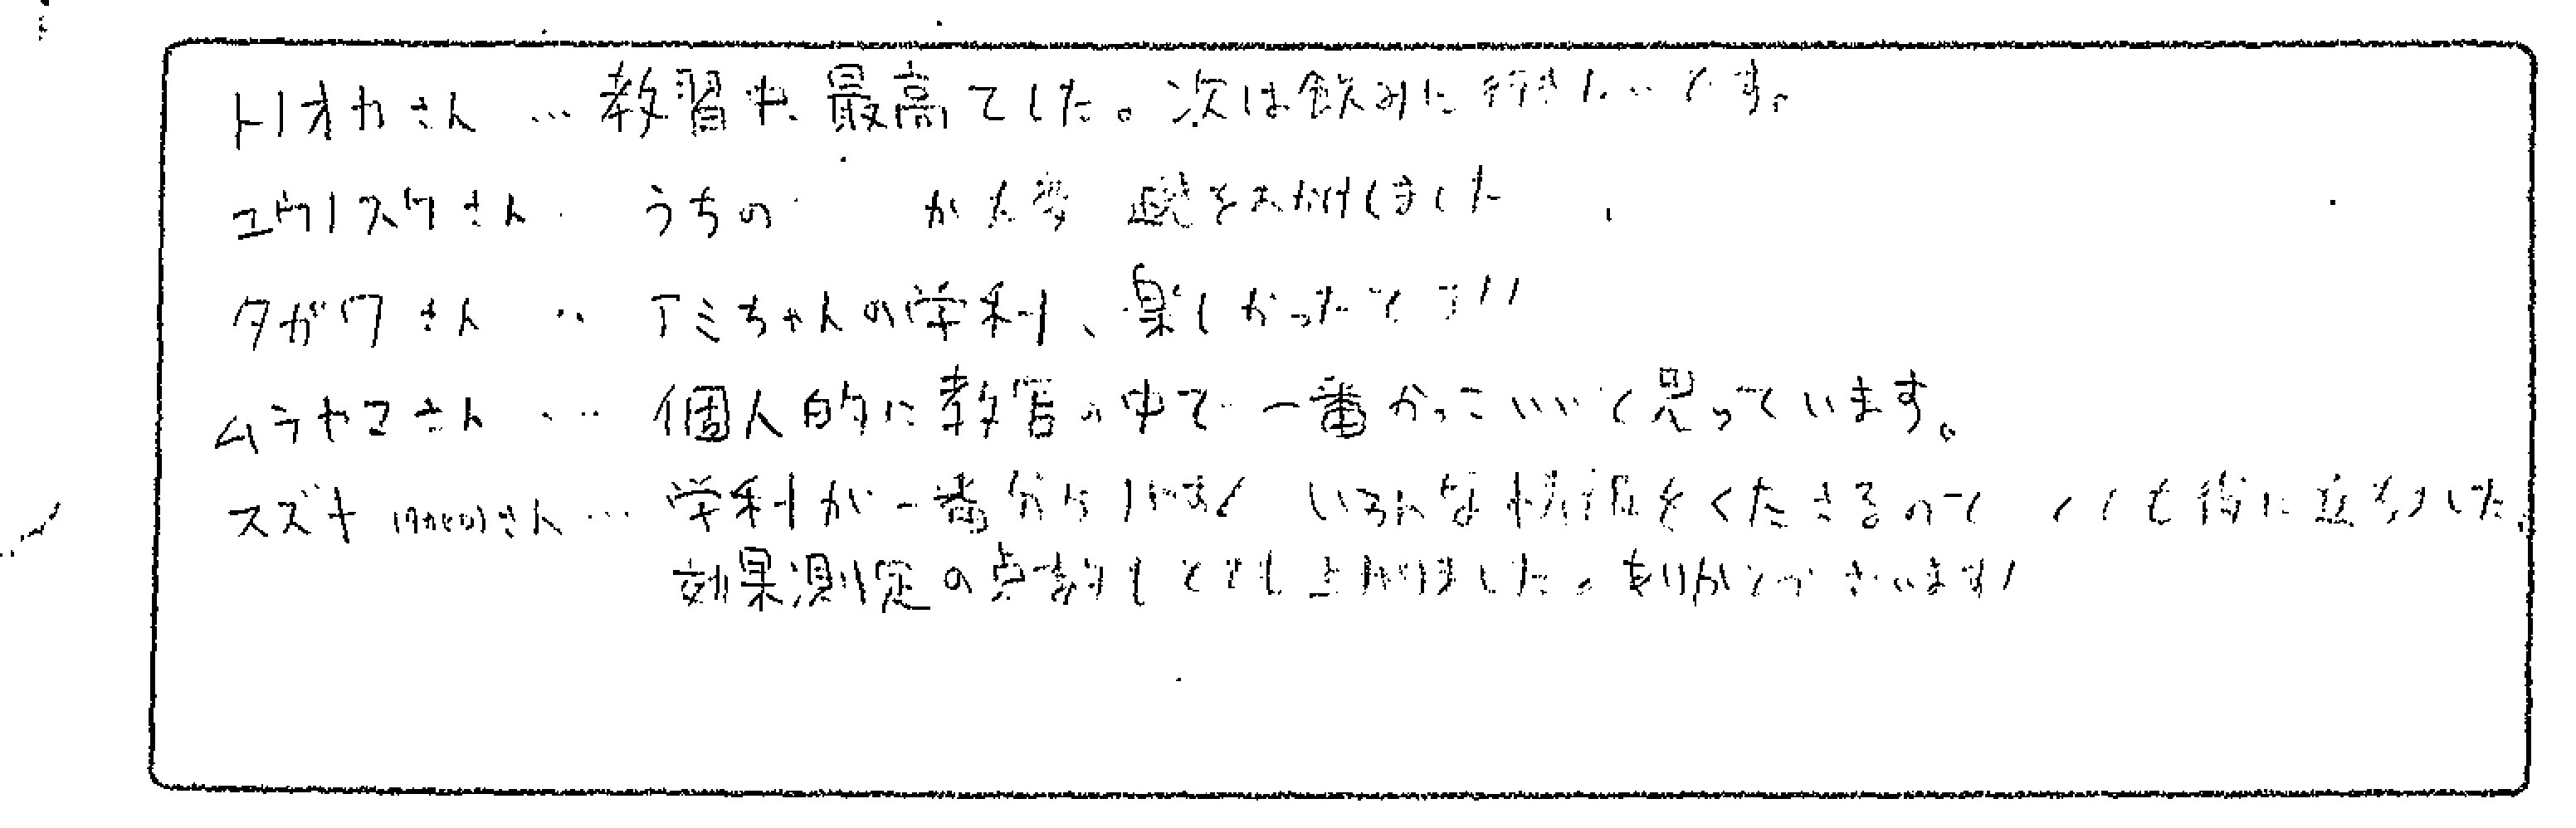 トリオカさん … 教習中、最高でした。次は飲みに行きたいです。
ユウノスケさん うちの が大変 迷惑をおかけしました
タガワさん … アミちゃんの学科、楽しかったです!!
ムラヤマさん … 個人的に教官の中で一番かっこいいと思っています。
スズキ さん … 学科が一番分かりやすく いろんな 情報をくださるので とても役に立ちました。
効果測定の点数もとても上がりました。ありがとうございます!